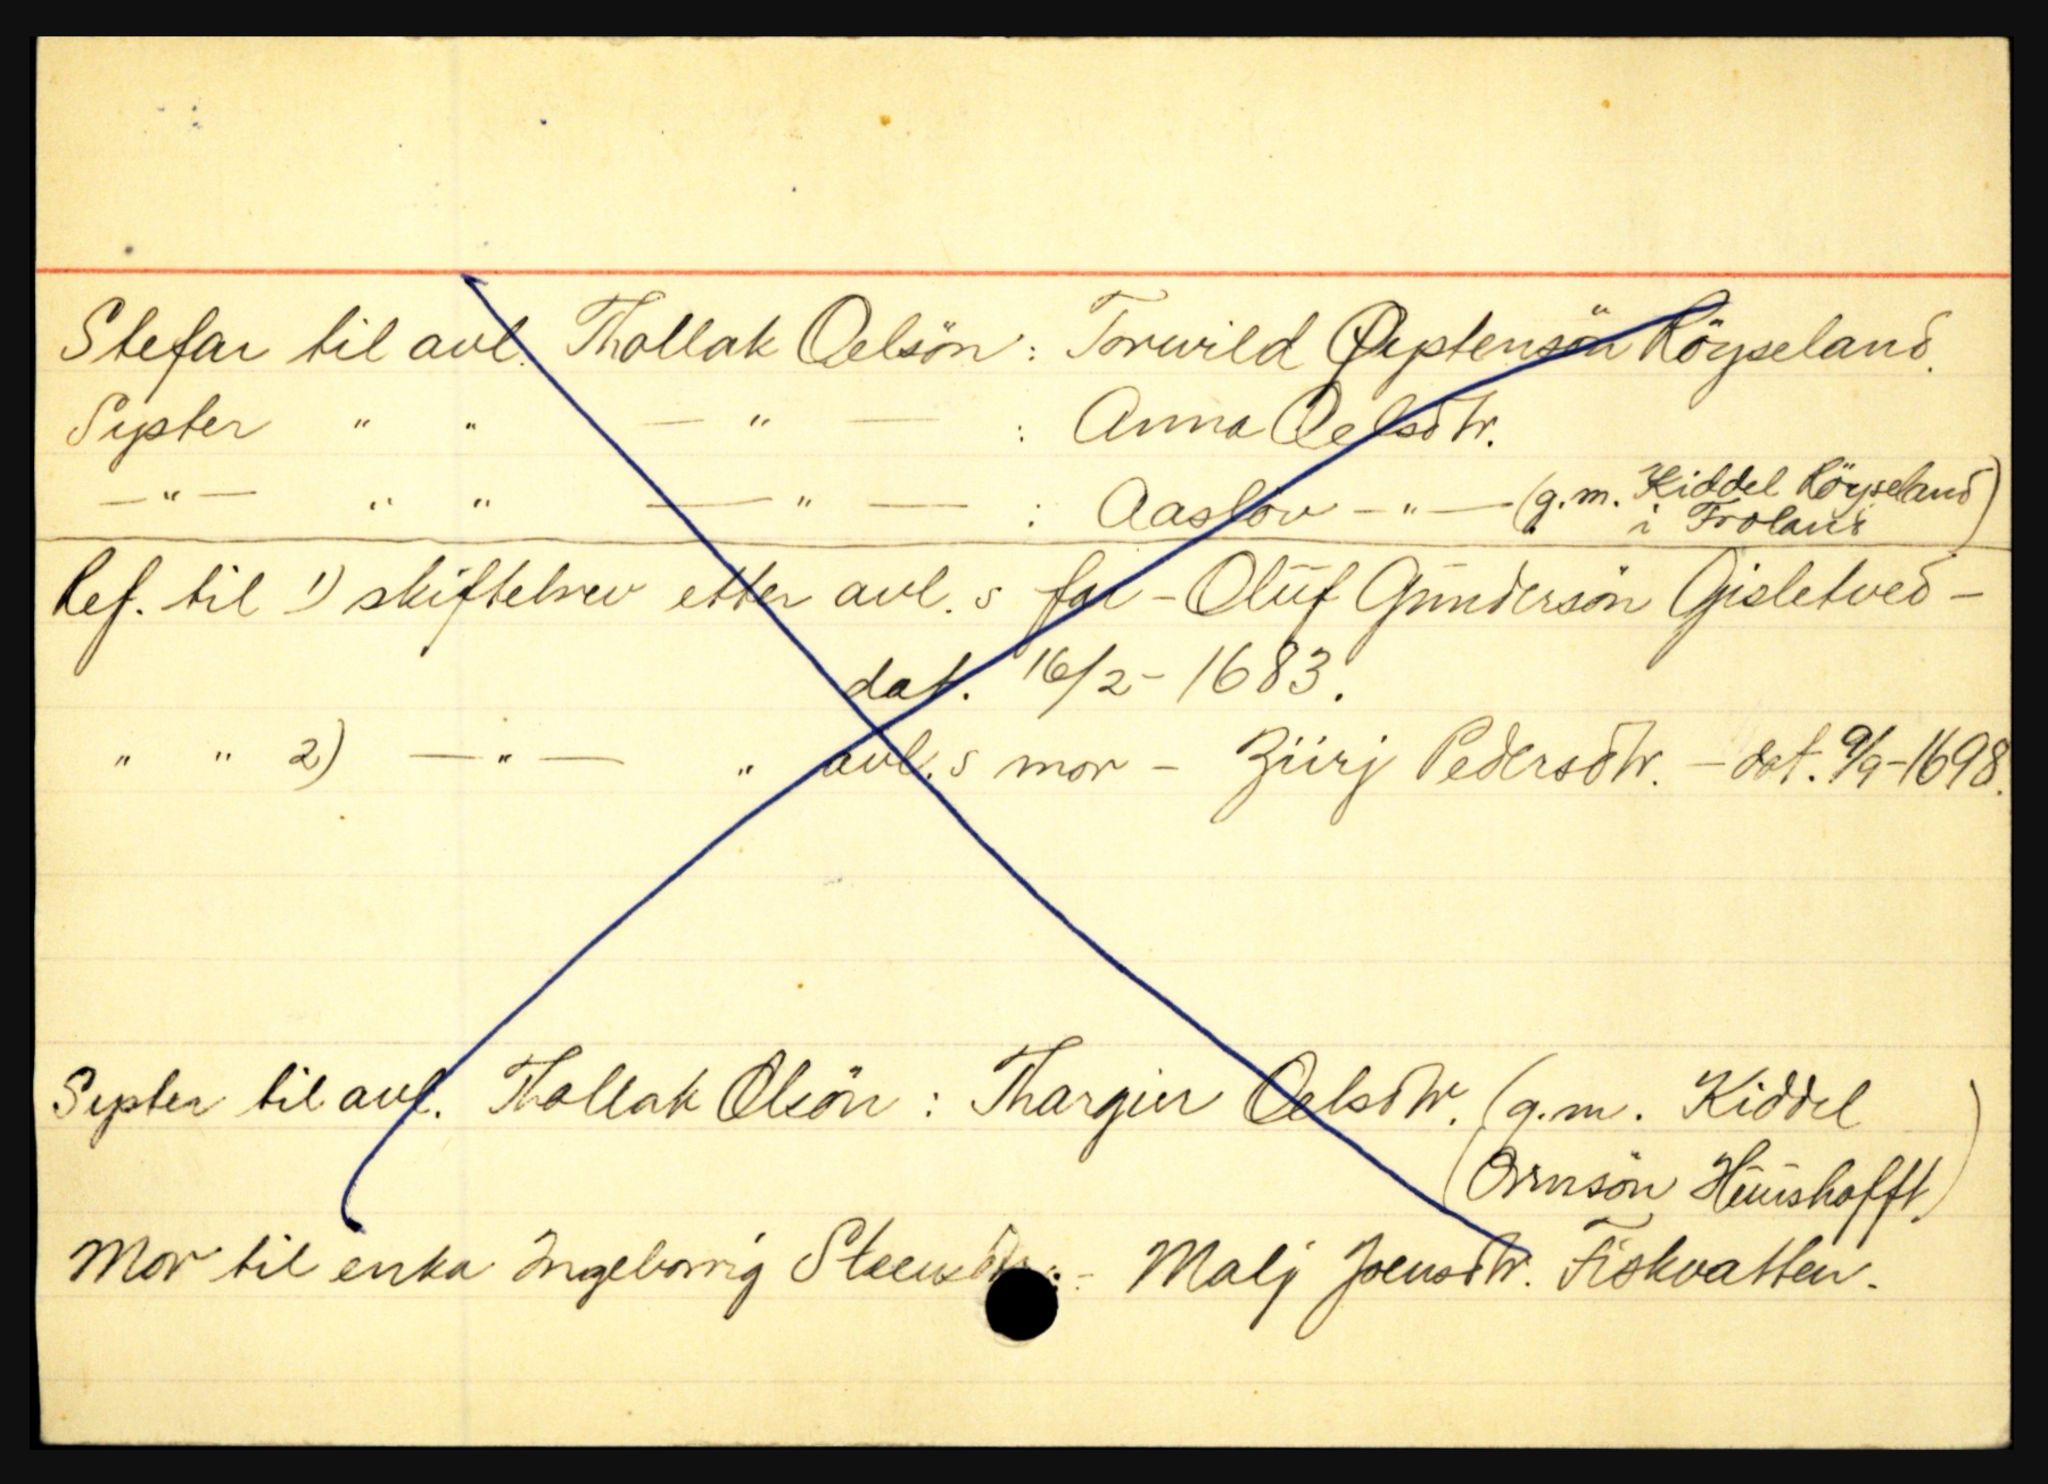 Stefar til avl. Thollak Oelsön: Torvild Øystensön Röyseland.
Syster " " — " — : Anna Oelsdtr.
— " — " " — " — : Aaslöv — " — (g.m. Kiddel Röyseland
i Froland)
Ref. til 1) skiftebrev etter avl.s far - Olüf Gündersön Gisletved -
dat. 16/2 - 1683.
" " 2) — " — " avl.s mor - Züirj Pedersdtr. - dat. 9/9 - 1698.
Syster til avl. Thollak Olsön : Thargier Oelsdtr. (g.m. Kiddel
(Ormsön Hüüshofft.)
Mor til enka Ingeborrig : - Malj Joensdtr. Fiskvatten.